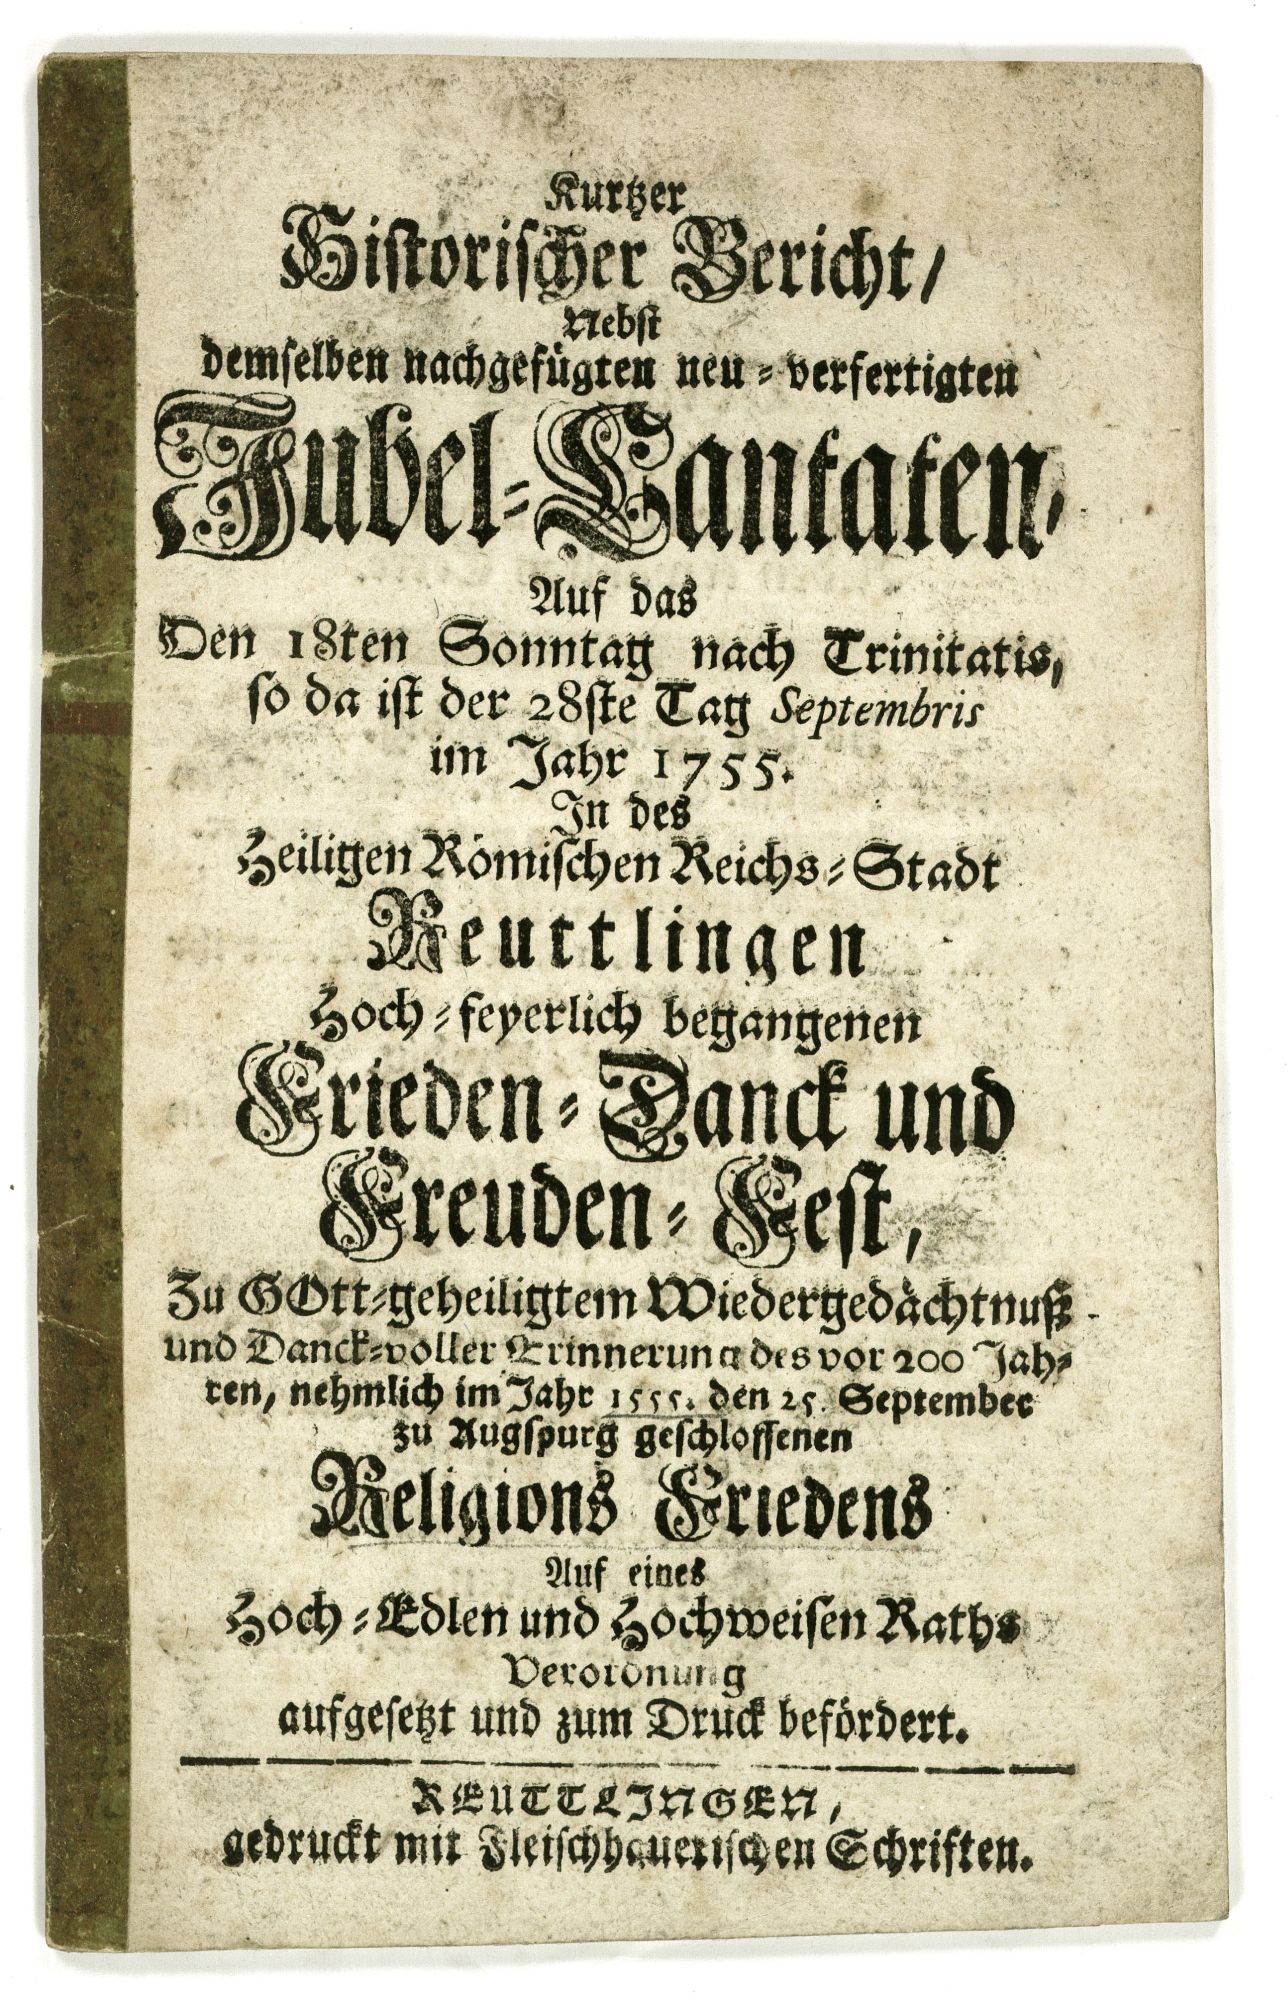 Kurtzer
Historischer Bericht/
Nebst
demselben nachgefügten neu-verfertigten
Jubel-Cantaten,
Auf das
Den 18ten Sonntag nach Trinitatis,
so da ist der 28ste Tag Septembris
im Jahr 1755.
In des
Heiligen Römischen Reichs-Stadt
Reuttlingen
Hoch-feyerlich begangenen
Frieden-Danck und
Freuden-Fest,
Zu GOtt-geheiligtem Wiedergedächtnuß
und Danck-voller Erinnerung des vor 200 Jah-
ren, nehmlich im Jahr 1555. den 25. September
zu Augspurg geschlossenen
Religions Friedens
Auf eines
Hoch-Edlen und Hochweisen Raths
Verordnung
aufgesetzt und zum Druck befördert.
REUTTLINGEN,
gedruckt mit Fleischhauerischen Schriften.